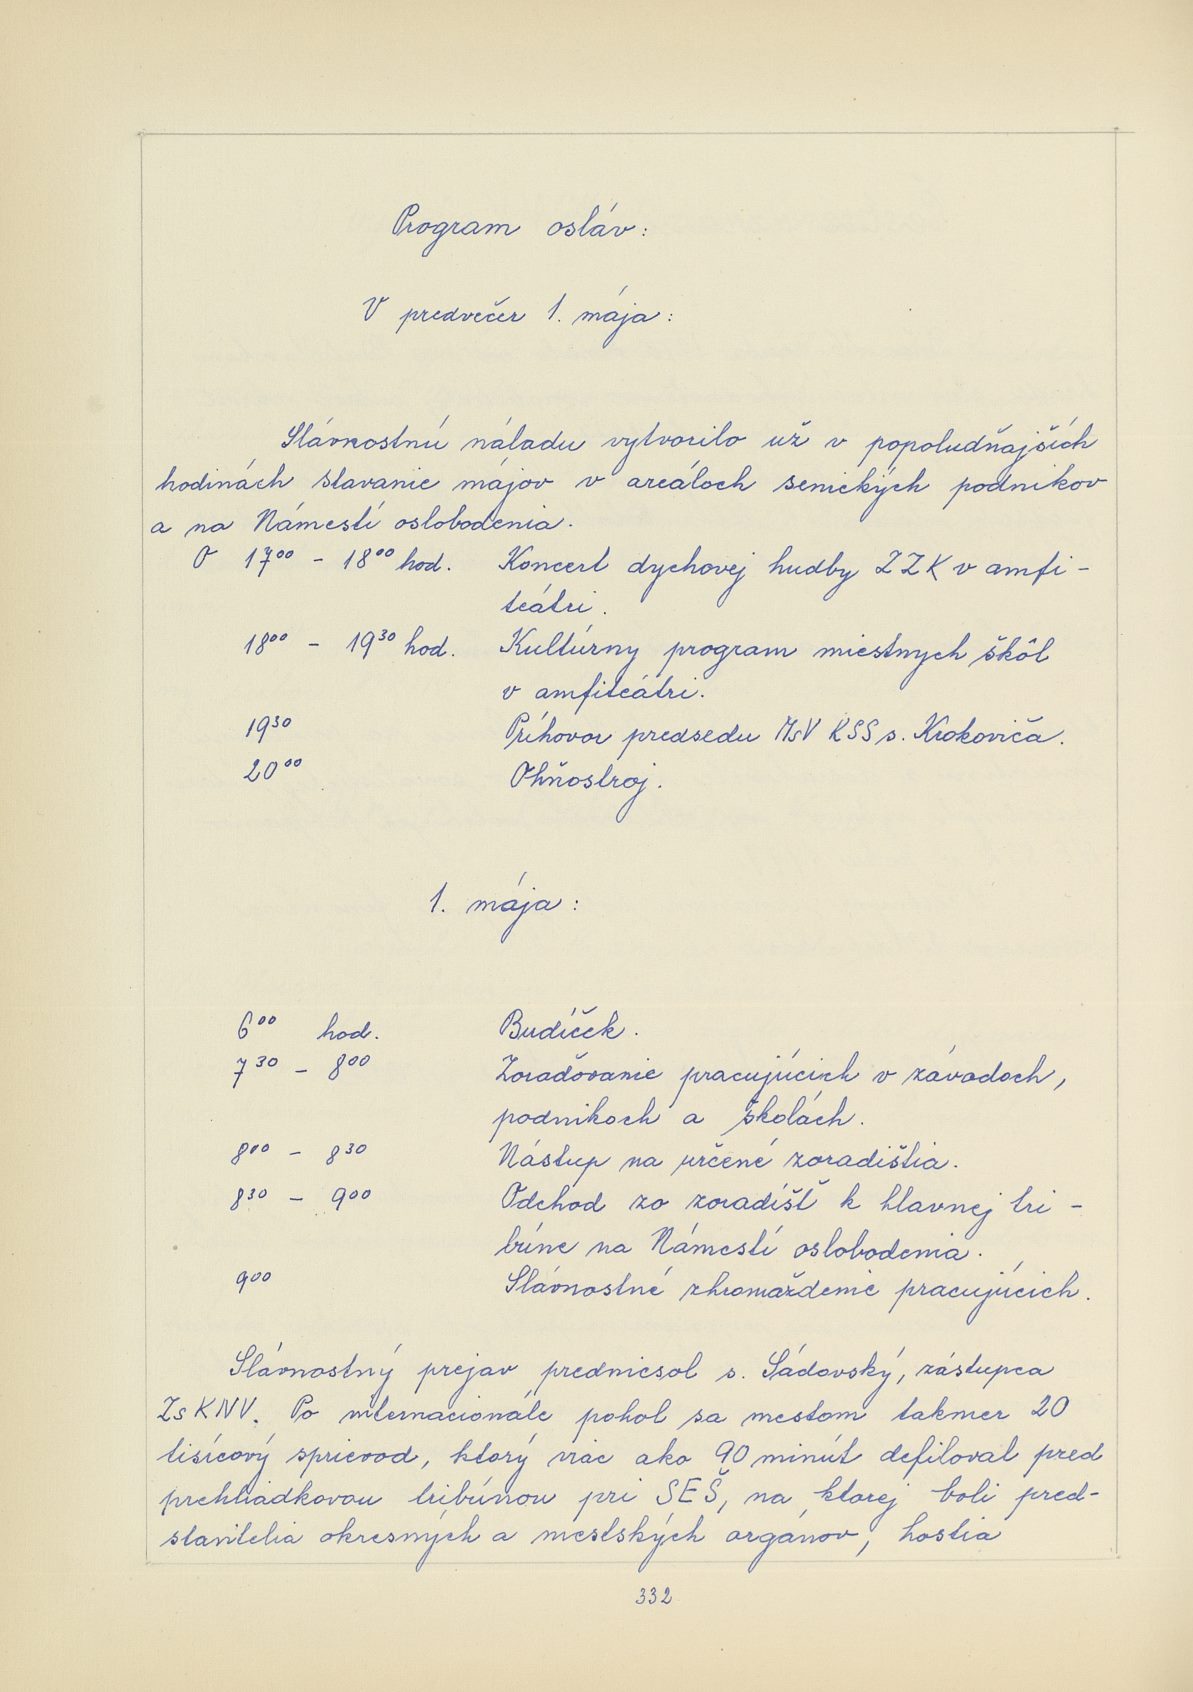 Program osláv:
V predvečer 1. mája:
Slávnostnú náladu vytvorilo už v popoludňajších
hodinách stavanie májov v areáloch senických podnikov
a na Námestí oslobodenia.
O 17⁰⁰ - 18⁰⁰ hod. Koncert dychovej hudby ZZK v amfi-
teátri.
18⁰⁰ - 19³⁰ hod. Kultúrny program miestnych škôl
v amfiteátri.
19³⁰ Príhovor predsedu MsV KSS s. Krokoviča.
20⁰⁰ Ohňostroj.
1. mája:
6⁰⁰ hod. Budíček.
7³⁰ - 8⁰⁰ Zoraďovanie pracujúcich v závodoch,
podnikoch a školách.
8⁰⁰ - 8³⁰ Nástup na určené zoradištia.
8³⁰ - 9⁰⁰ Odchod zo zoradíšť k hlavnej tri-
búne na Námestí oslobodenia.
9⁰⁰ Slávnostné zhromaždenie pracujúcich.
Slávnostný prejav predniesol s. Sádovský, zástupca
ZsKNV. Po internacionále pohol sa mestom takmer 20
tisícový sprievod, ktorý viac ako 90 minút defiloval pred
prehliadkovou tribúnou pri SEŠ, na ktorej boli pred-
stavitelia okresných a mestských orgánov, hostia
332